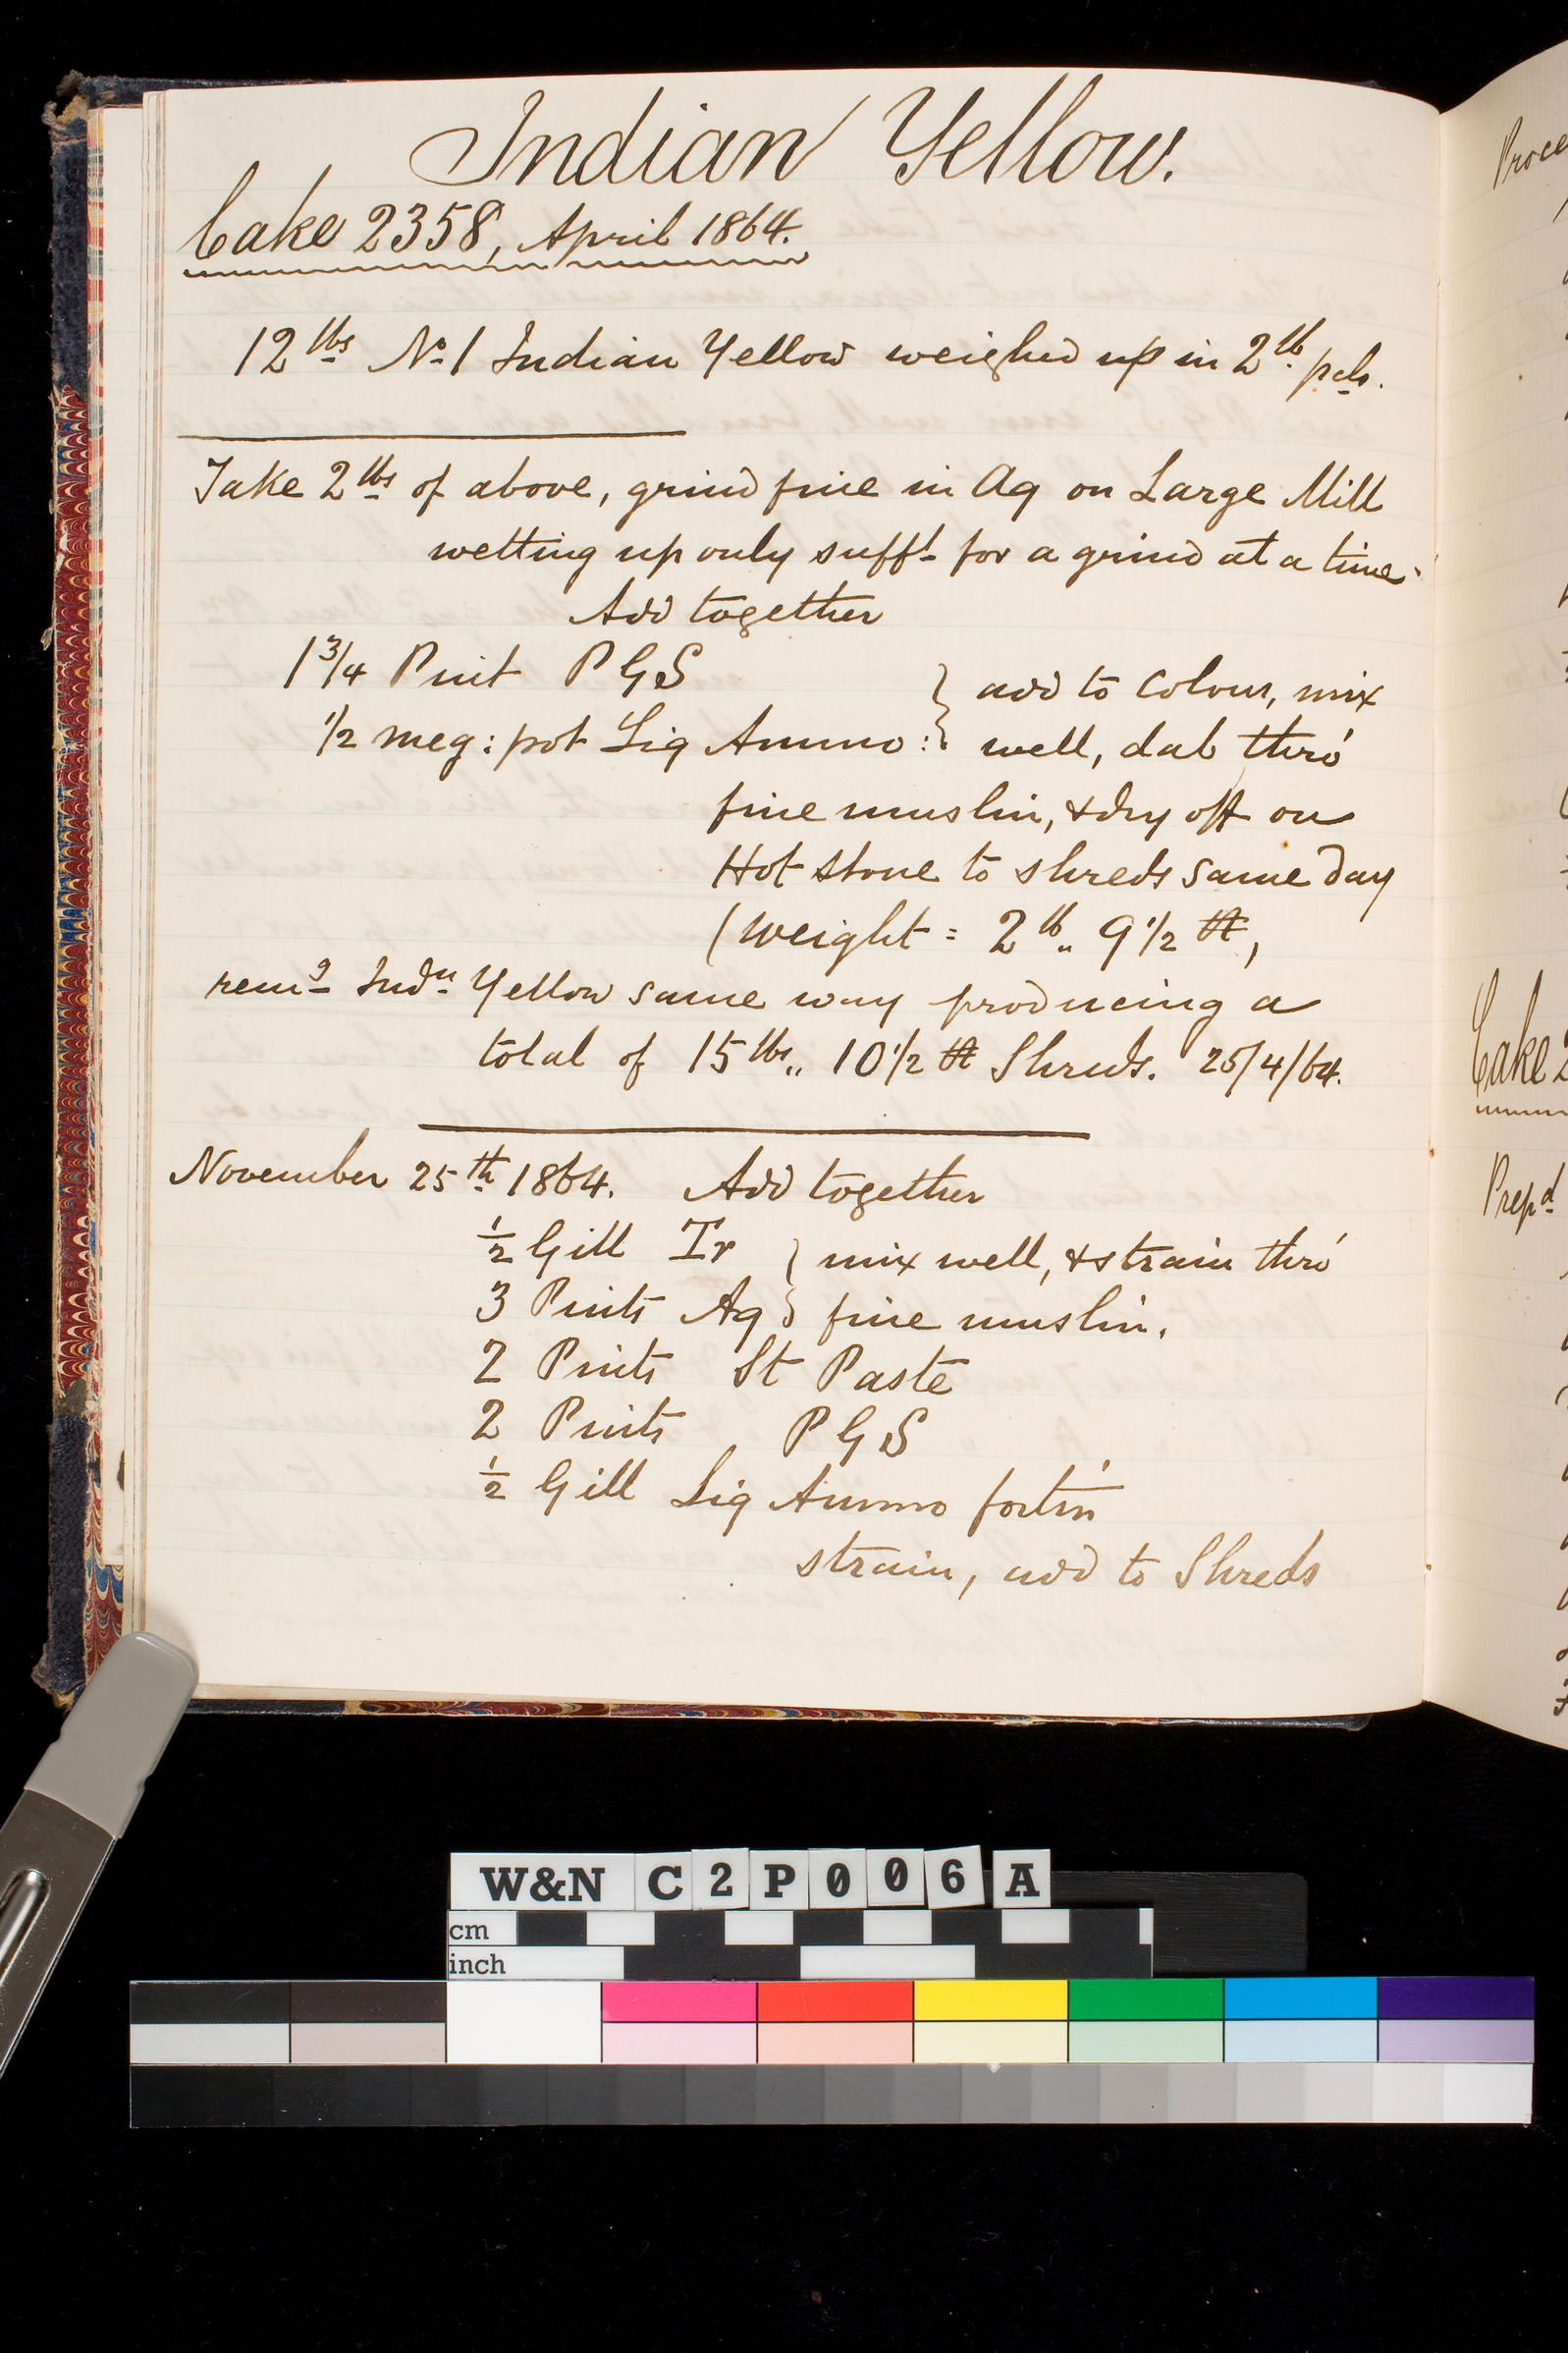 Indian Yellow.
Cake 2358, April 1864.
12 lbs No 1 Indian Yellow weighed up in 2 lb. pcls.
Take 2 lbs of above, grind fine in Aq on Large Mill
wetting up only sufft for a grind at a time.
Add together
1 3/4 Pint P G S } add to Colour, mix
1/2 meg: pot Liq Ammo: } well, dab thro'
fine muslin, & dry off on
Hot Stone to shreds same day
(weight = 2 lb.. 9 1/2
remg Indn Yellow same way producing a
total of 15 lbs.. 10 1/2 Shreds. 25/4/64.
November 25th 1864. Add together
1/2 Gill Tr } mix well, & strain thro'
3 Pints Aq } fine muslin.
2 Pints St Paste
2 Pints P G S
1/2 Gill Liq Ammo
strain, add to Shreds
Proce
Cake 2
Prepd
W&N C2P006A
cm
inch